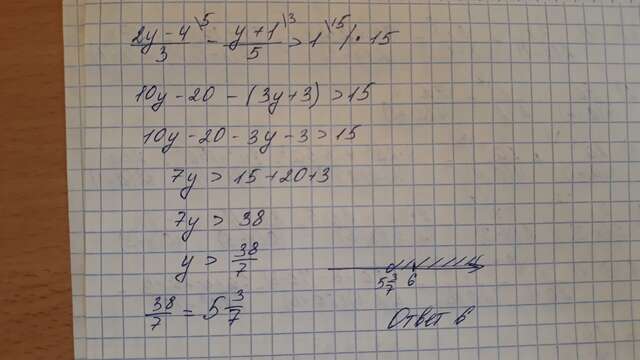 (2y-4)/3 \5 - (y+1)/5 \3 > 1 \15 | · 15
10y - 20 - (3y+3) > 15
10y - 20 - 3y - 3 > 15
7y > 15+20+3
7y > 38
y > 38/7
5 3/7 6
38/7 = 5 3/7
Ответ 6